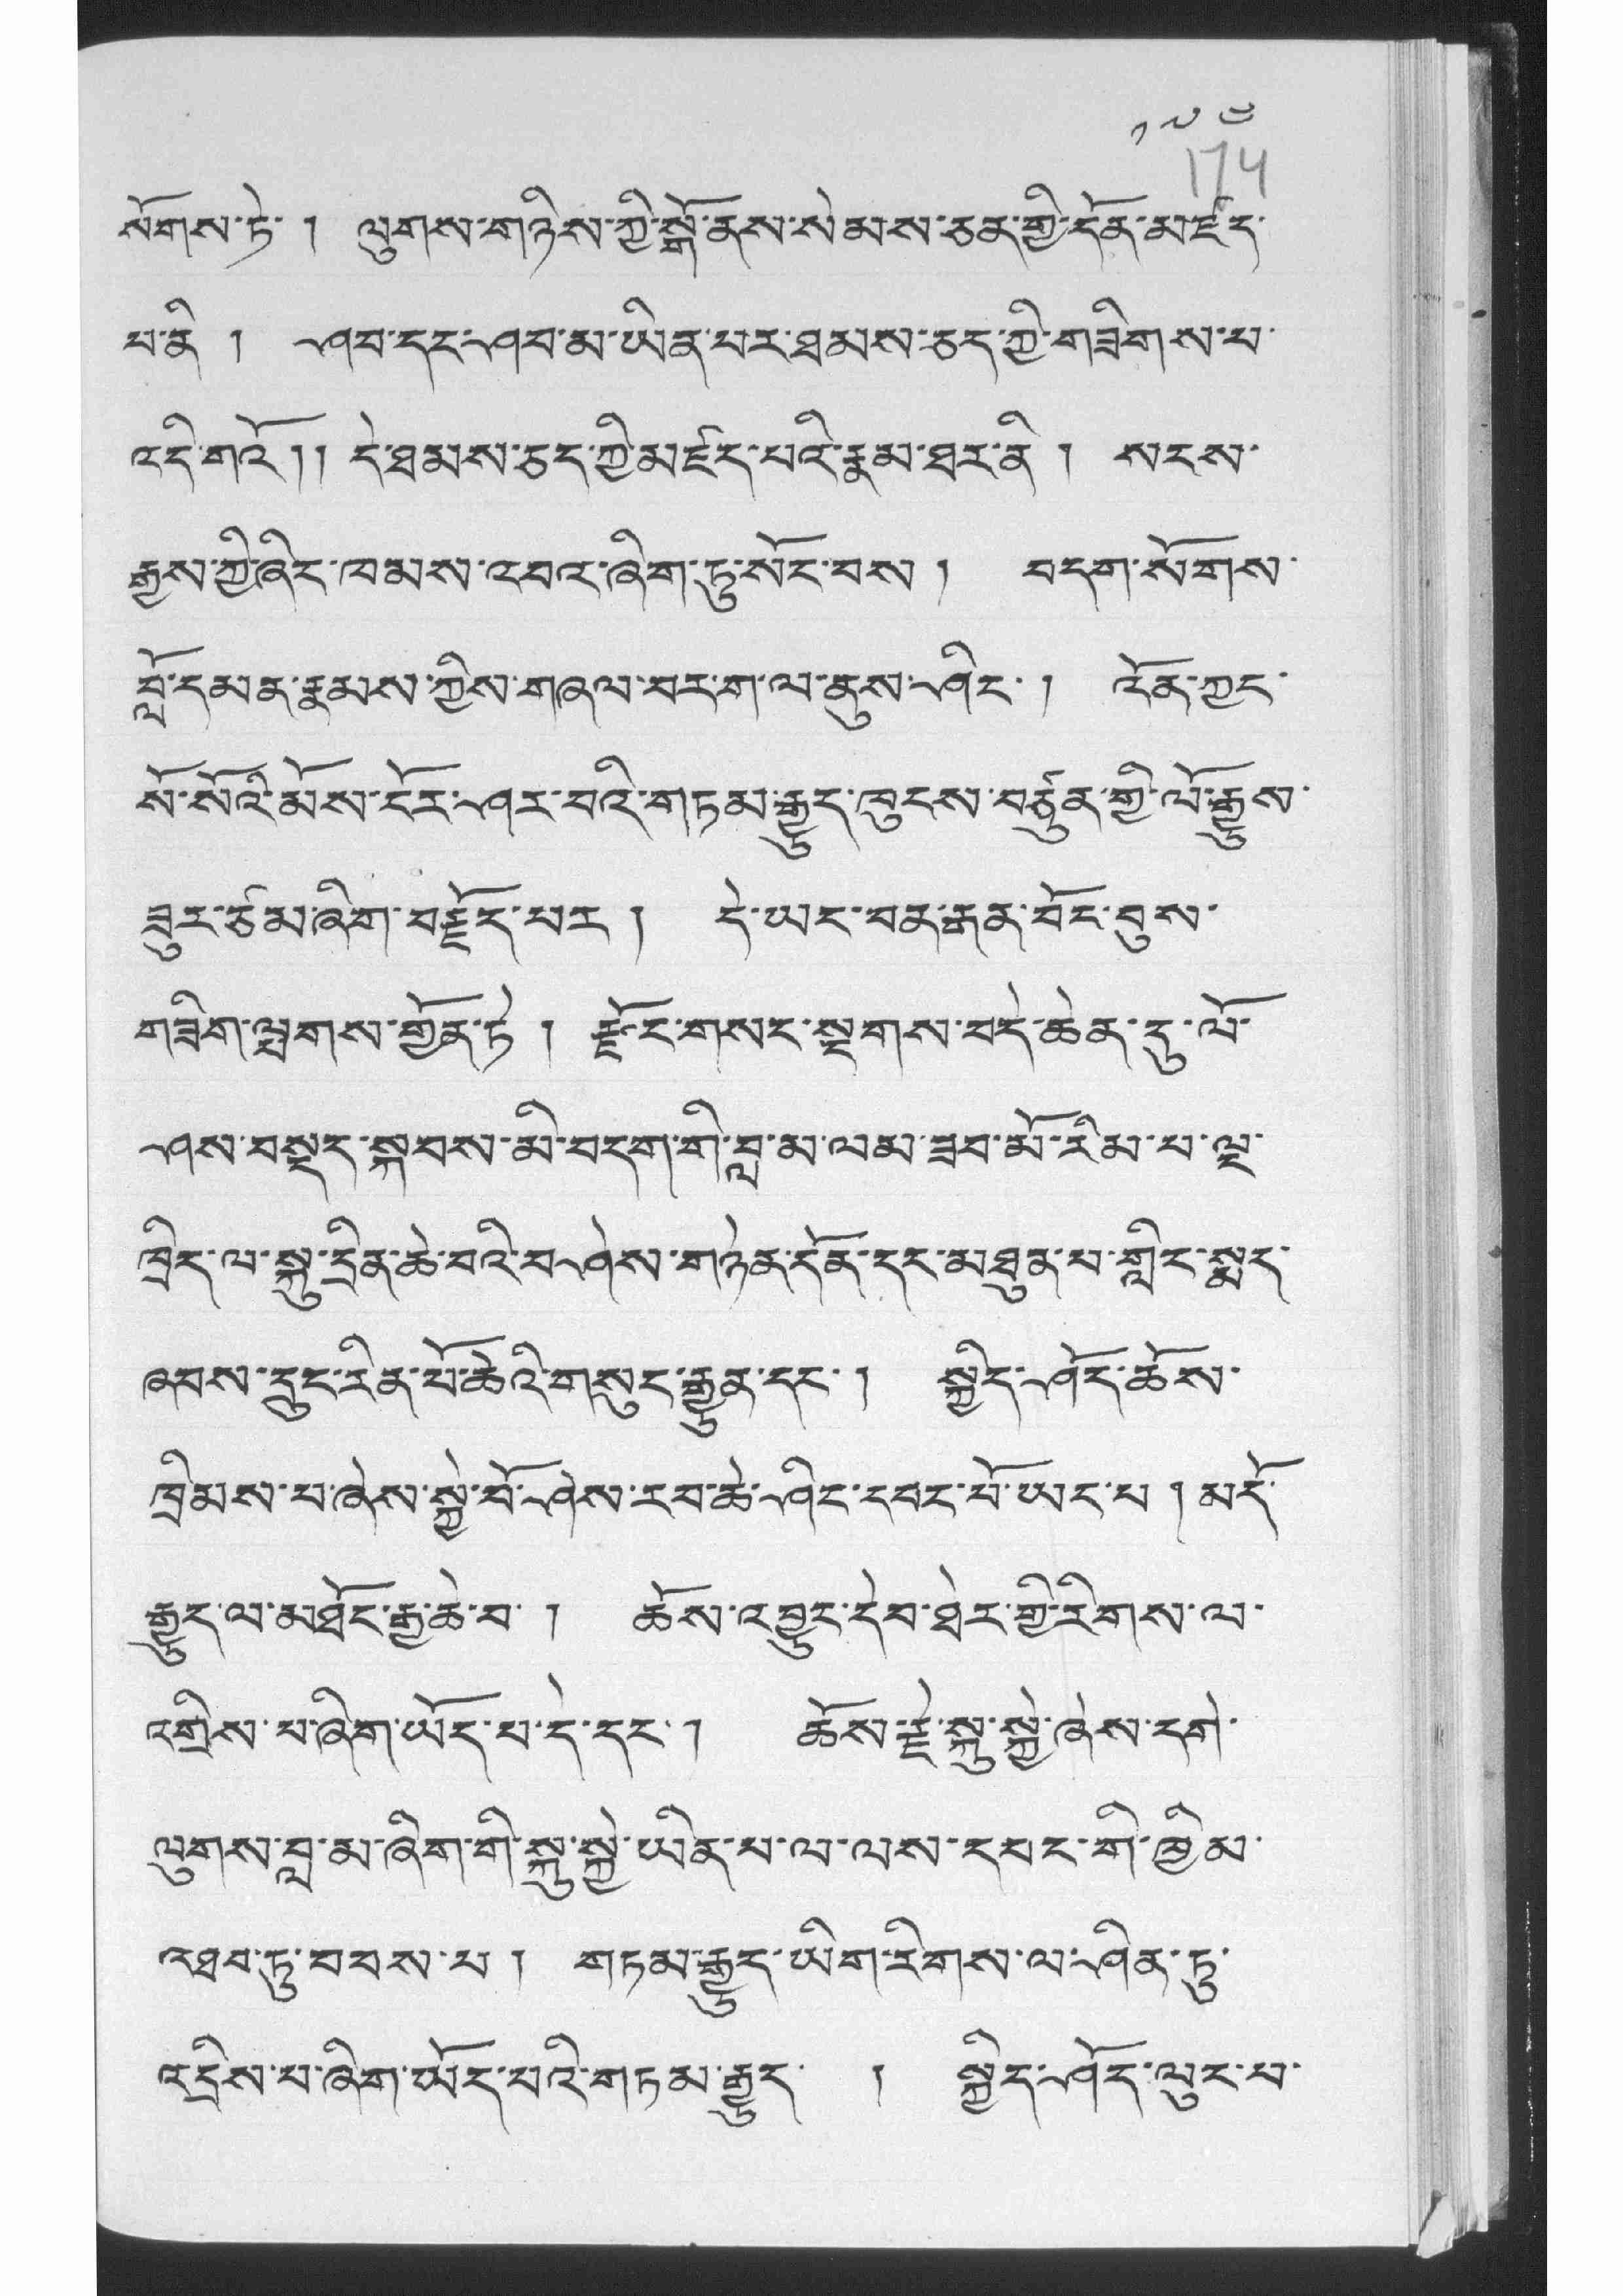 ༡༧༤
174
སོགས་ཏེ་། ལུགས་གཉིས་ཀྱི་སྒོ་ནས་སེམས་ཅན་གྱི་དོན་མཛད་
པ་ནི། ཤབ་དང་ཤབ་མ་ཡིན་པར་ཐམས་ཅད་ཀྱི་གཟིགས་པ་
འདི་གའོ།། དེ་ཐམས་ཅད་ཀྱི་མཛད་པའི་རྣམ་ཐར་ནི། སངས་
རྒྱས་ཀྱི་ཞིང་ཁམས་འབའ་ཞིག་ཏུ་སོང་བས། བདག་སོགས་
བློ་དམན་རྣམས་ཀྱིས་གཞལ་བར་ག་ལ་ནུས་ཤིང་། འོན་ཀྱང་
སོ་སོའི་མོས་ངོར་ཤར་བའི་གཏམ་རྒྱུད་ཁུངས་བཙུན་གྱི་ལོ་རྒྱུས་
ཟུར་ཙམ་ཞིག་བརྗོད་པར། དེ་ཡང་བན་རྒན་བོང་བུས་
གཟིག་ལྤགས་གྱོན་ཏེ། རྫོང་གསང་སྔགས་བདེ་ཆེན་དུ་ལོ་
ཤས་བསྡད་སྐབས་མི་བདག་གི་བླ་མ་ལམ་ཟབ་མོ་རིམ་པ་ལྔ་
ཁྲིད་ལ་སྐུ་དྲིན་ཆེ་བའི་བཤེས་གཉེན་དོན་དང་མཐུན་པ་གླིང་སྨད་
ཞབས་དྲུང་རིན་པོ་ཆེའི་གསུང་རྒྱུན་དང་། སྐྱིད་ཤོད་ཆོས་
ཁྲིམས་པ་ཞེས་སྐྱེ་བོ་ཤེས་རབ་ཆེ་ཤིང་དབང་པོ་ཡང་པ། མདོ་
རྒྱུད་ལ་མཐོང་རྒྱ་ཆེ་བ་། ཆོས་འབྱུང་དེབ་ཐེར་གྱི་རིགས་ལ་
འགྲིས་པ་ཞིག་ཡོད་པ་དེ་དང་། ཆོས་རྗེ་སྐུ་སྐྱེ་ཞེས་དགེ་
ལུགས་བླ་མ་ཞིག་གི་སྐུ་སྐྱེ་ཡིན་པ་ལ་ལས་དབང་གི་ཁྱིམ་
འཐབ་ཏུ་བབས་པ། གཏམ་རྒྱུད་ཡིག་རིགས་ལ་ཤིན་ཏུ་
འདྲིས་པ་ཞིག་ཡོད་པའི་གཏམ་རྒྱུད་ ། སྐྱིད་ཤོད་ལུང་པ་